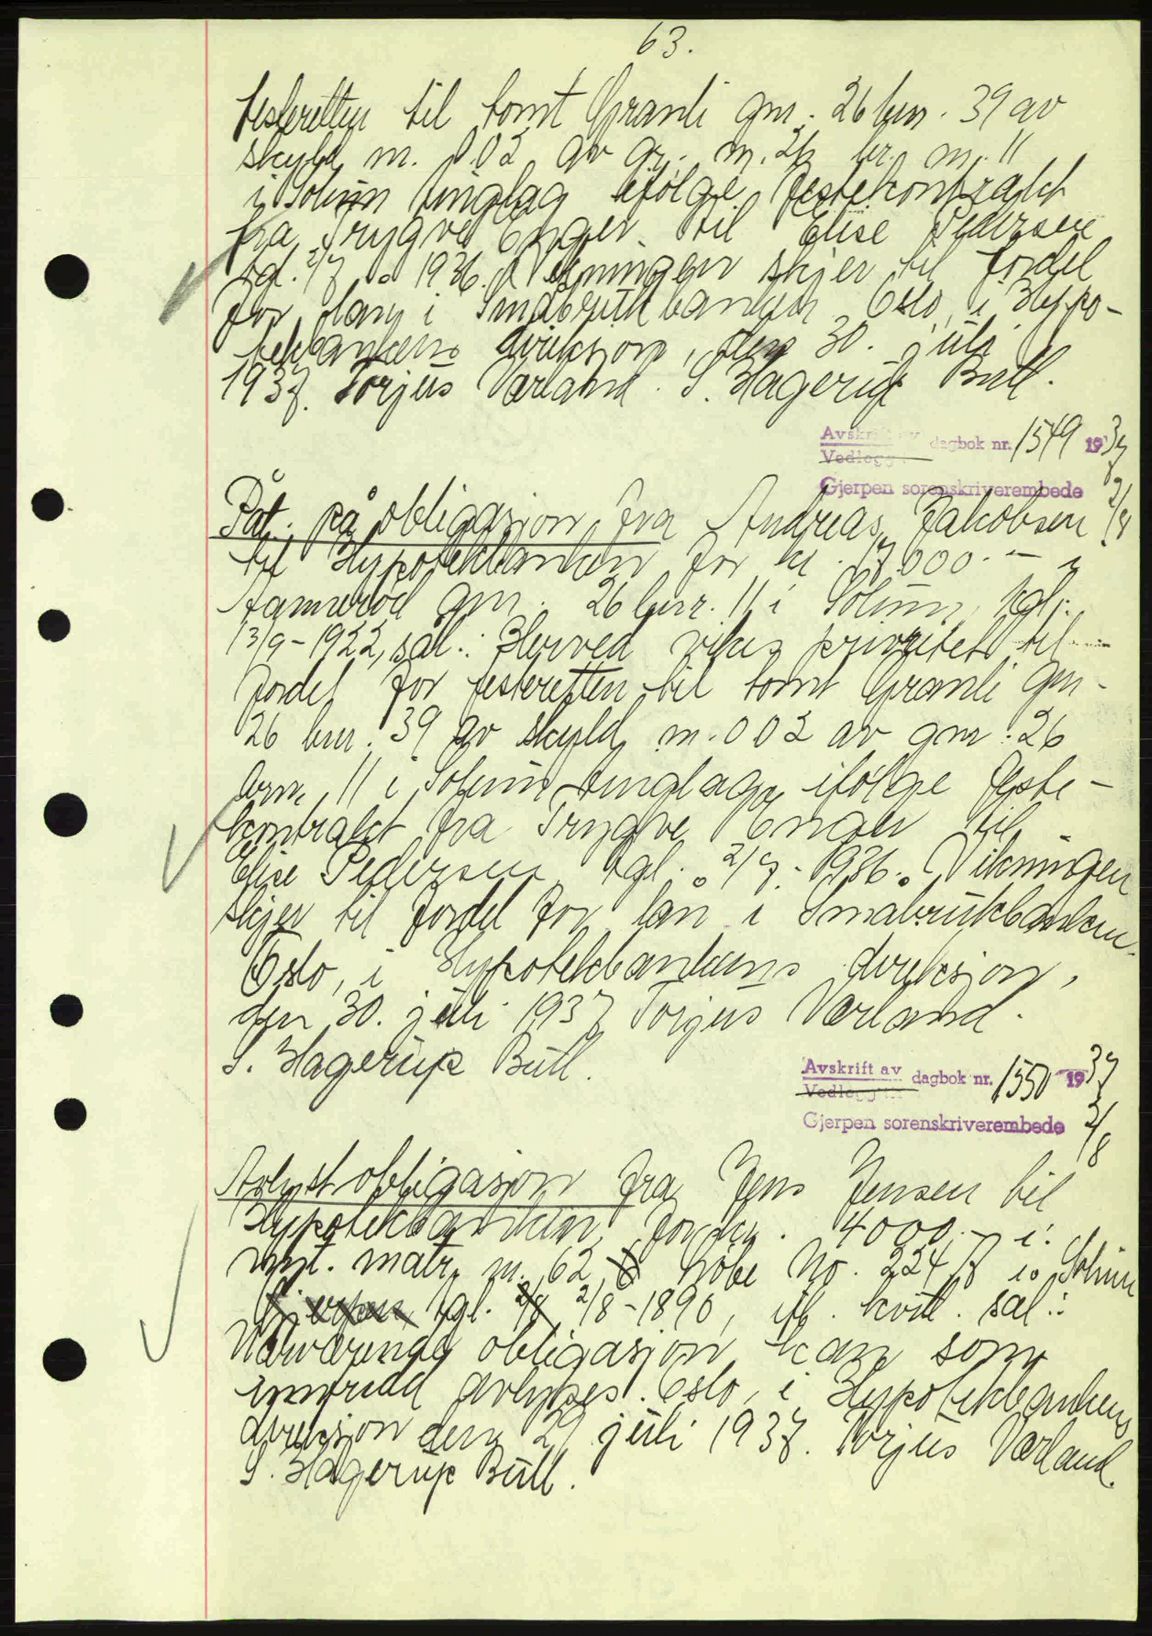 63.
festeretten til tomt Granli gnr. 26 bnr. 39 av
skyld m. 0.02 av gr. nr. 26 br. nr. 11
i Solum tinglag ifølge festekontrakt
fra Trygve Enger til Elise Pedersen
tgl. 2/7 - 1936. Vikningen skjer til fordel
for lån i Småbrukbanken Oslo, i Hypo-
tekbankens direksjon, den 30. juli
1937. Torjus Værland. S. Hagerup Bull.
Avskrift av dagbok nr. 1549 1937
Vedlegg
Gjerpen sorenskriverembede 2/8
Påt. på obligasjon fra Andreas Jakobsen
til Hypotekbanken for kr. 17000.- i
gnr. 26 bnr. 11 i Solum, tgl.
13/9-1922, sål.: Herved vikes prioritet til
fordel for festeretten til tomt Granli gnr.
26 bnr. 39 av skyld m. 002 av gnr. 26
bnr. 11 i Solum tinglag ifølge feste-
kontrakt fra Trygve Enger til
Elise Pedersen tgl. 2/7 - 1936. Vikningen
skjer til fordel for lån i Småbrukbanken.
Oslo, i Hypotekbankens direksjon,
den 30. juli 1937 Torjus Værland.
S. Hagerup Bull.
Avskrift av dagbok nr. 1550 1937
Vedlegg
Gjerpen sorenskriverembede 2/8
Avlyst obligasjon fra Jens Jensen til
Hypotekbanken for kr. 4000.- i:
matr. nr. 62, løbe No. 224 i Solum
tgl. 2/8-1890, ifl. kvitt. sål.:
Nærværende obligasjon kan som
innfridd avlyses. Oslo, i Hypotekbankens
direksjon den 29 juli 1937. Torjus Værland.
S. Hagerup Bull.